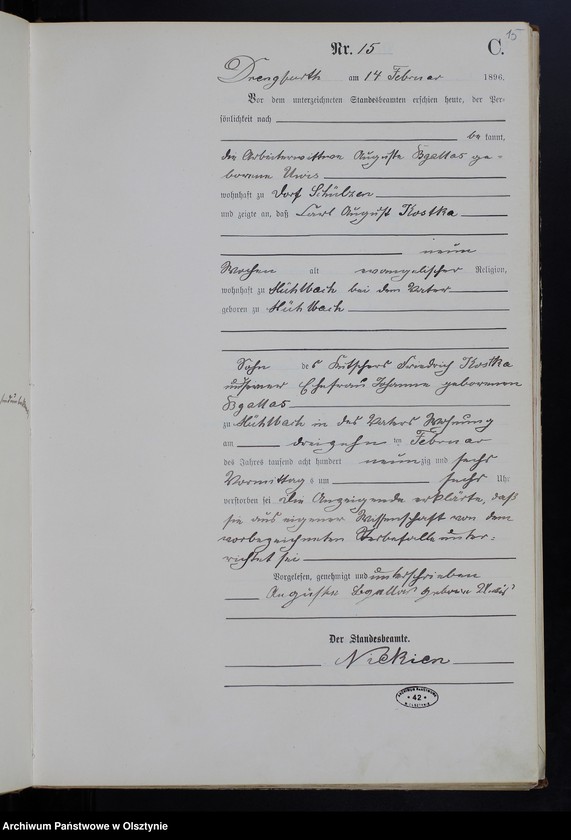 15
Nr. 15 C.
Drengfurth am 14 Februar 1896.
Vor dem unterzeichneten Standesbeamten erschien heute, der Per-
sönlichkeit nach
be kannt,
die Arbeiterwittwe Auguste Bgallas ge-
borene Unis
wohnhaft zu Dorf Schülzen
und zeigte an, daß Carl August Kostka
neun
Wochen alt evangelischer Religion,
wohnhaft zu Mühlbach bei dem Vater
geboren zu Mühlbach
Sohn des Kutschers Friedrich Kostka
und seiner Ehefrau Johanne geborenen
Bgallas
zu Mühlbach in des Vaters Wohnung
am dreizehn ten Februar
des Jahres tausend acht hundert neunzig und sechs
Vormittags um sechs Uhr
verstorben sei Die Anzeigende erklärte, daß
sie aus eigener Wissenschaft von dem
vorbezeichneten Sterbefalle unter-
richtet sei
Vorgelesen, genehmigt und unterschrieben
Auguste Bgallas geborne Unis
Der Standesbeamte.
Nickien
ARCHIWUM PAŃSTWOWE
* 42 *
W OLSZTYNIE
Archiwum Państwowe w Olsztynie